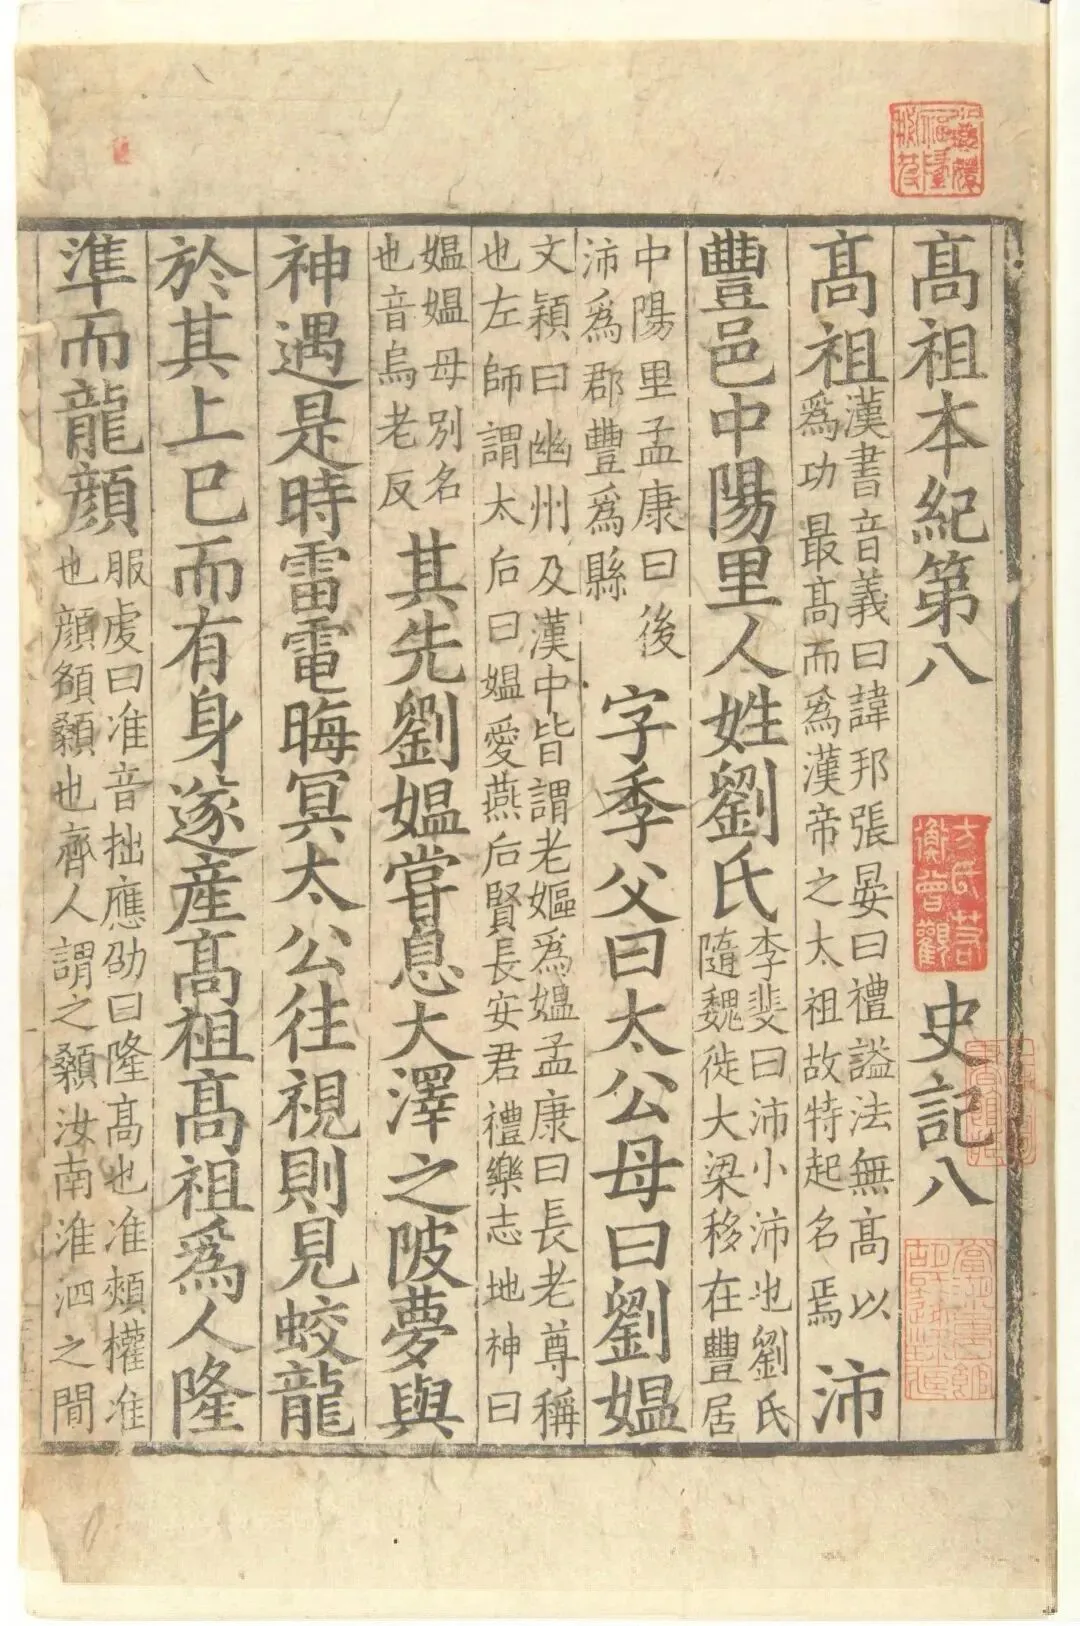 高祖本紀第八 史記八
高祖
漢書音義曰諱邦張晏曰禮謚法無高以
爲功最高而爲漢帝之太祖故特起名焉
沛
豐邑中陽里人姓劉氏
李斐曰沛小沛也劉氏
隨魏徙大梁移在豐居
中陽里孟康曰後
沛爲郡豐爲縣
字季父曰太公母曰劉媼
文穎曰幽州及漢中皆謂老嫗爲媼孟康曰長老尊稱
也左師謂太后曰媼愛燕后賢長安君禮樂志地神曰
媼媼母別名
也音烏老反
其先劉媼嘗息大澤之陂夢與
神遇是時雷電晦冥太公往視則見蛟龍
於其上巳而有身遂產高祖高祖爲人隆
準而龍顏
服虔曰准音拙應劭曰隆高也准頰權准
也顏頟顙也齊人謂之顙汝南淮泗之間